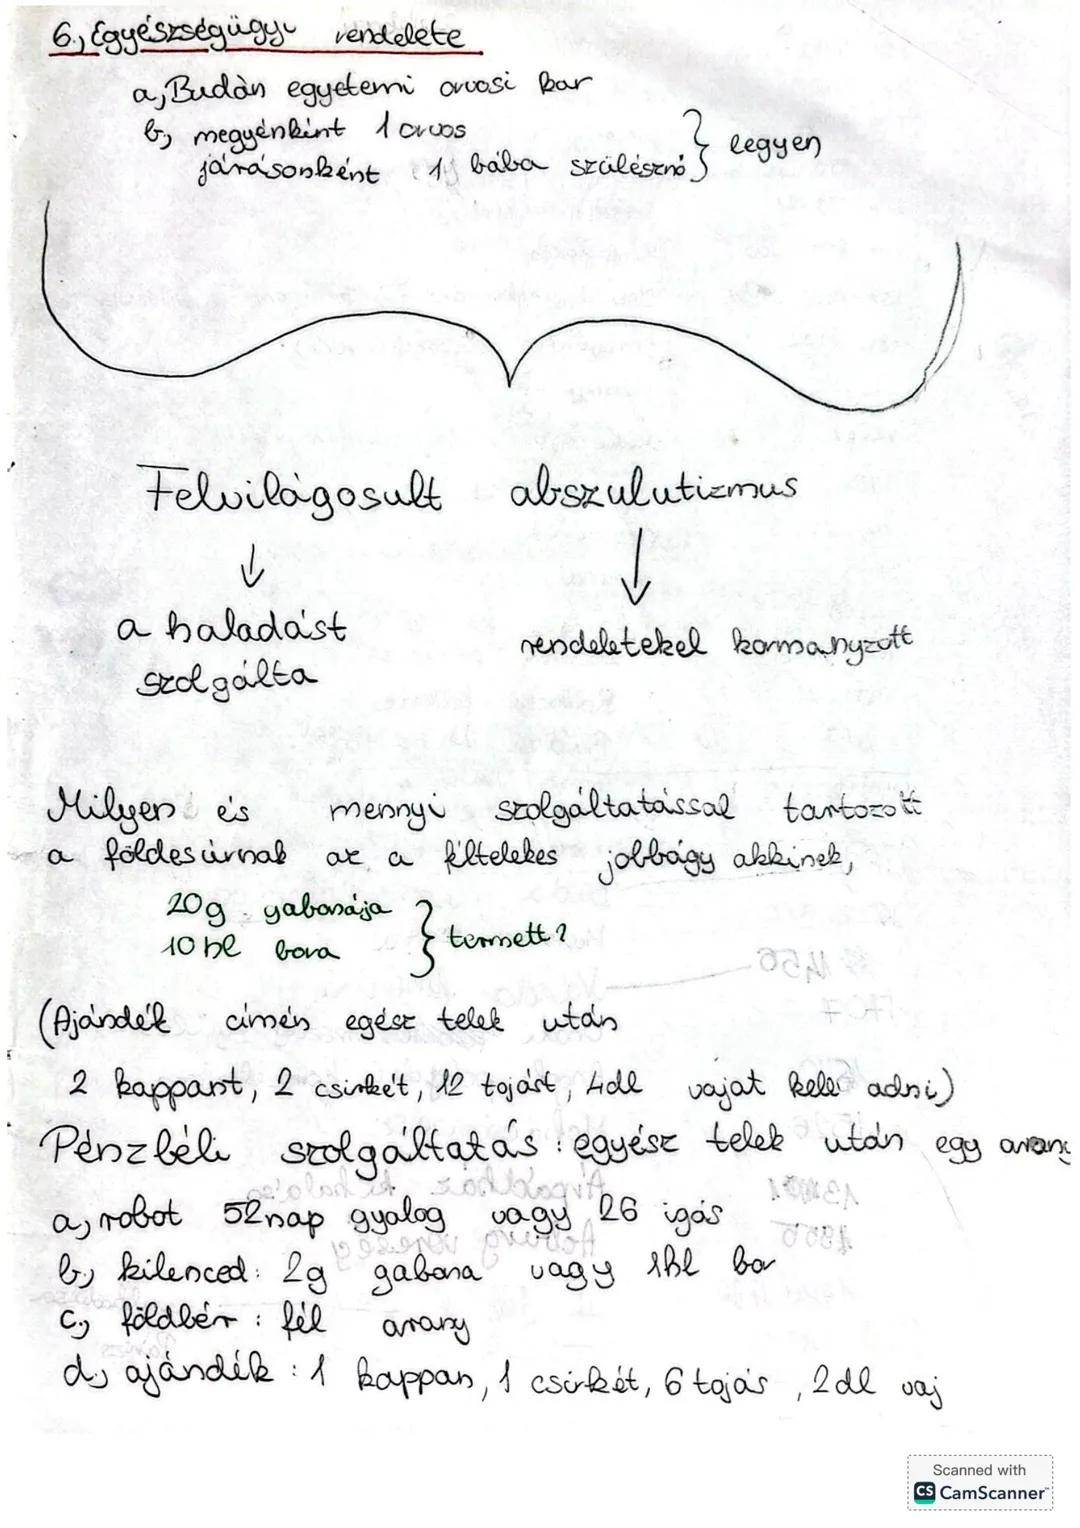 6., Egyészségügyi rendelete
a, Budán egyetemi orvosi kar
b, megyénként 1 orvos
járásonként 1 bába szülésznő } legyen
Felvilágosult abszulutizmus
↓ ↓
a haladást rendeletekel kormányzott
szolgálta
Milyen és mennyi szolgáltatással tartozott
a földesúrnak az a féltelekes jobbágy akkinek,
20q gabonája
10 hl bora } termett?
(Ajándék címén egész telek után
2 kappant, 2 csirkét, 12 tojást, 4dl vajat kell adni)
Pénzbéli szolgáltatás: egyész telek után egy arany
a, robot 52nap gyalog vagy 26 igás
b, kilenced: 2q gabona vagy 1hl bor
c, földbér: fél arany
d, ajándék: 1 kappan, 1 csirkét, 6 tojás, 2dl vaj
Scanned with
CS CamScanner